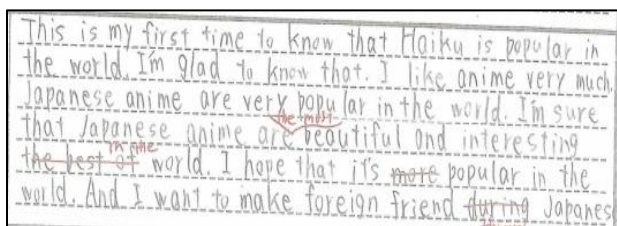 This is my first time to know that Haiku is popular in
the world. I'm glad to know that. I like anime very much.
Japanese anime are very popular in the world. I'm sure
the most
that Japanese anime are beautiful and interesting
in the
the best of world. I hope that it's more popular in the
world. And I want to make foreign friend during Japanes